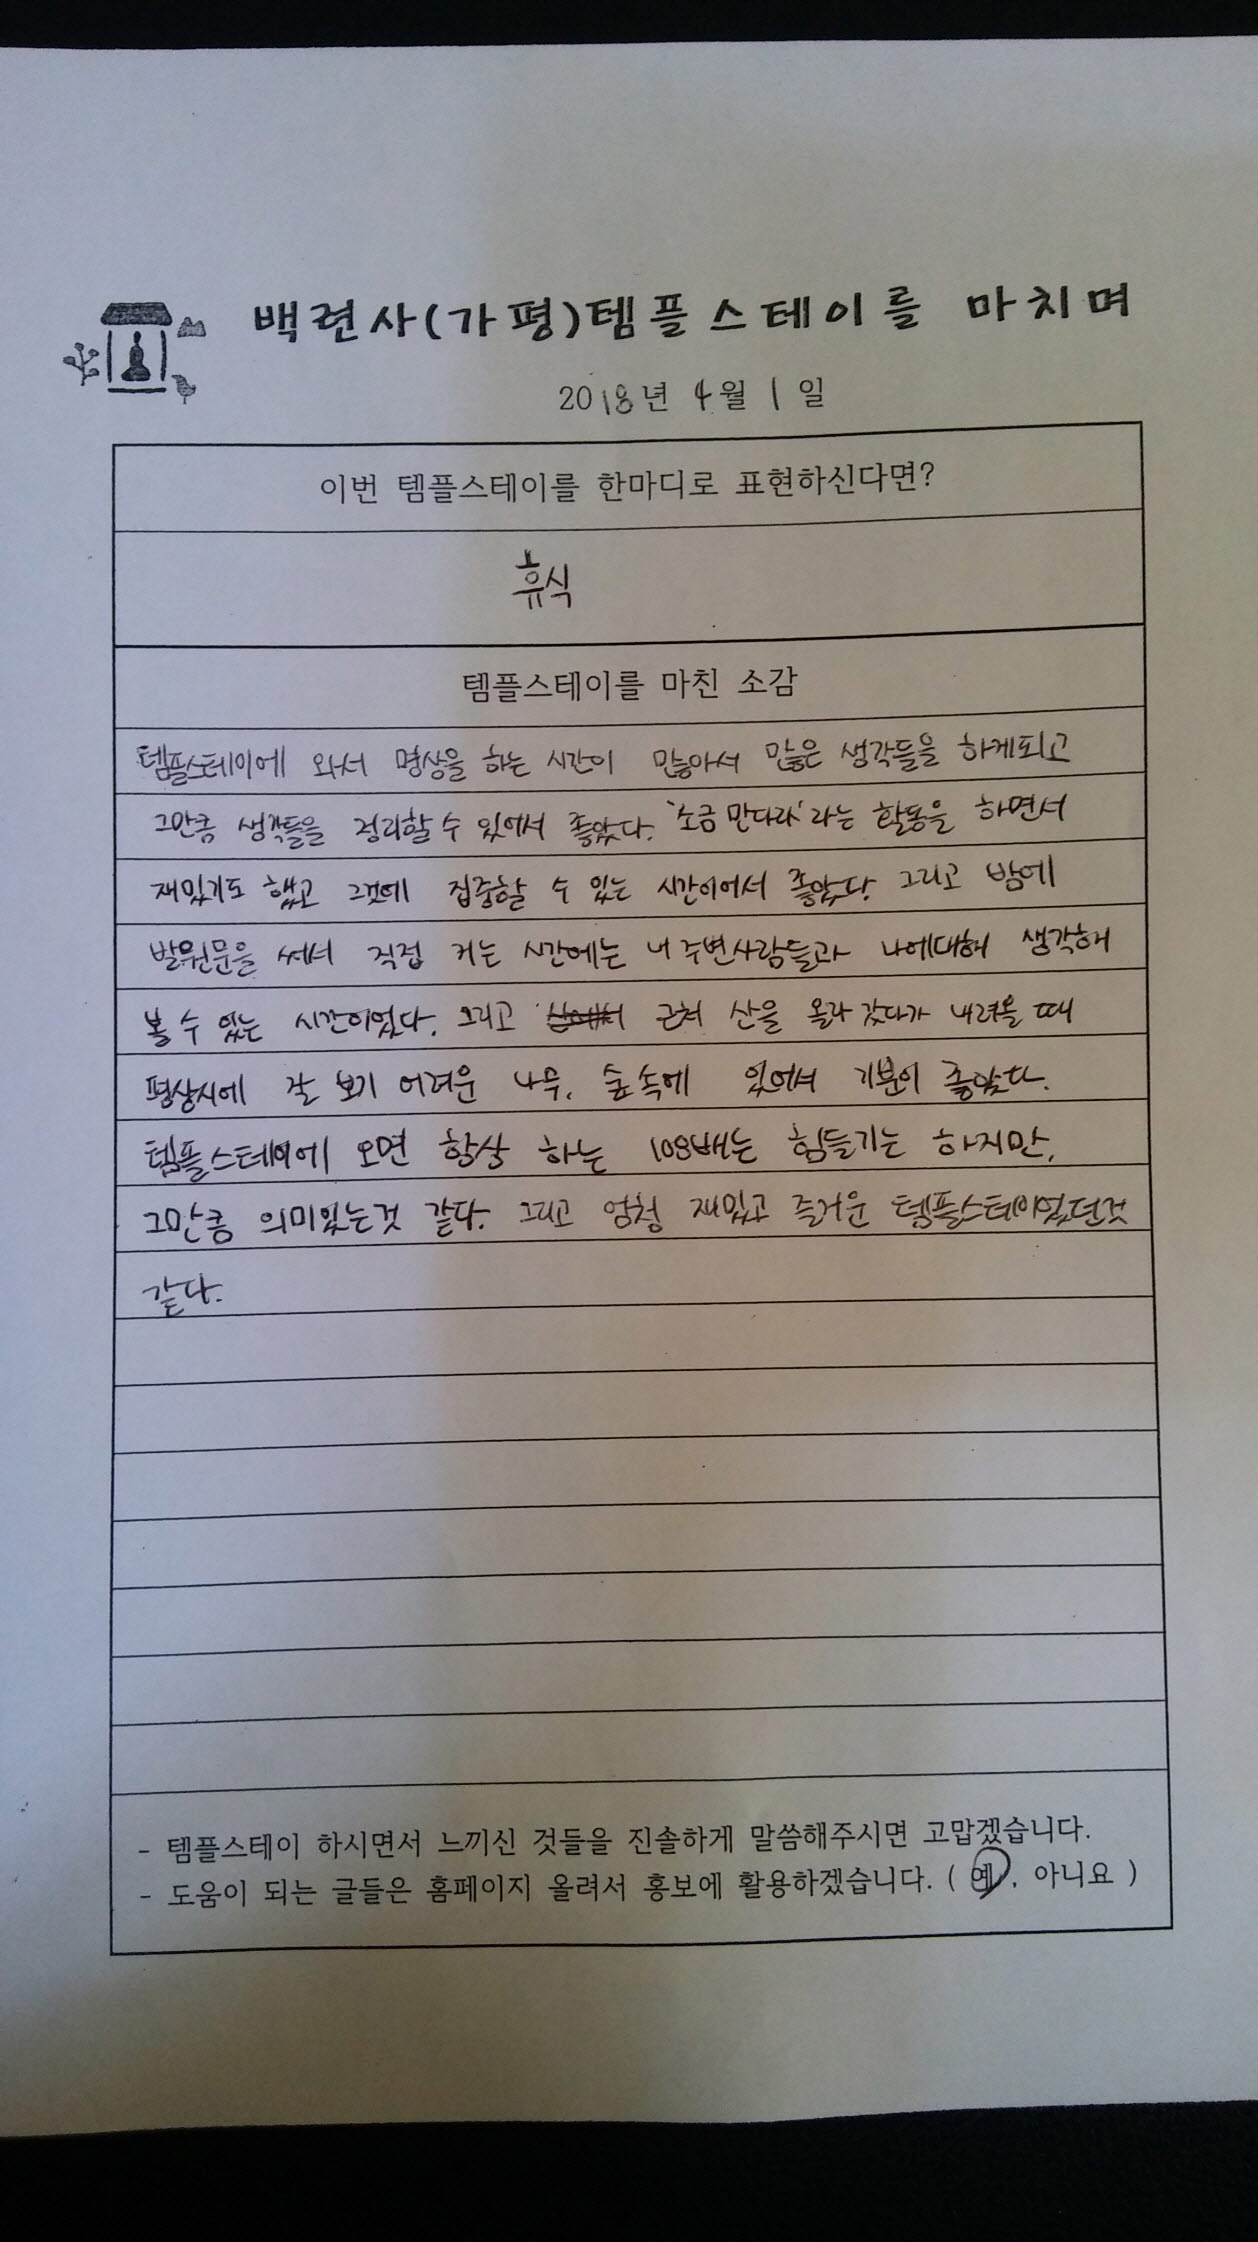 백련사(가평)템플스테이를 마치며
2018년 4월 1일
이번 템플스테이를 한마디로 표현하신다면?
휴식
템플스테이를 마친 소감
템플스테이에 와서 명상을 하는 시간이 많아서 많은 생각들을 하게되고
그만큼 생각들을 정리할 수 있어서 좋았다. '소금 만다라'라는 활동을 하면서
재밌기도 했고 그것에 집중할 수 있는 시간이어서 좋았다. 그리고 밤에
발원문을 써서 직접 켜는 시간에는 내 주변사람들과 나에대해 생각해
볼 수 있는 시간이었다. 그리고 근처 산을 올라 갔다가 내려올 때
평상시에 잘 보기 어려운 나무, 숲 속에 있어서 기분이 좋았다.
템플스테이에 오면 항상 하는 108배는 힘들기는 하지만,
그만큼 의미있는것 같다. 그리고 엄청 재밌고 즐거운 템플스테이였던것
같다.
- 템플스테이 하시면서 느끼신 것들을 진솔하게 말씀해주시면 고맙겠습니다.
- 도움이 되는 글들은 홈페이지 올려서 홍보에 활용하겠습니다. ( 예, 아니요 )